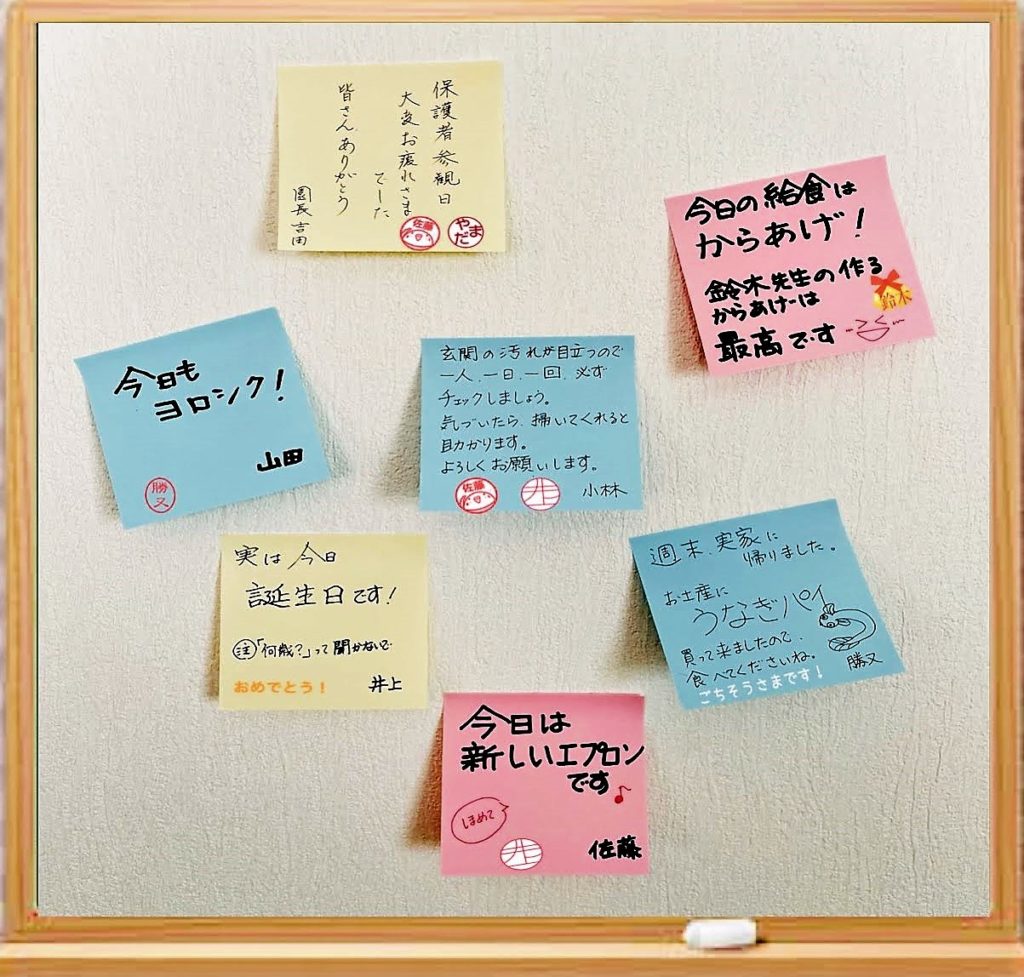 保護者参観日
大変お疲れさま
でした
皆さんありがとう
園長 吉田
佐藤
やまだ
今日の給食は
からあげ！
鈴木先生の作る
からあげは
最高です
鈴木
今日も
ヨロシク！
山田
勝又
玄関の汚れが目立つので
一人、一日、一回、必ず
チェックしましょう。
気づいたら、掃いてくれると
助かります。
よろしくお願いします。
佐藤
小林
実は今日
誕生日です！
注「何歳？」って聞かないで
おめでとう！
井上
週末、実家に
帰りました。
お土産に
うなぎパイ
買って来ましたので、
食べてくださいね。
勝又
ごちそうさまです！
今日は
新しいエプロン
です♪
ほめて
佐藤